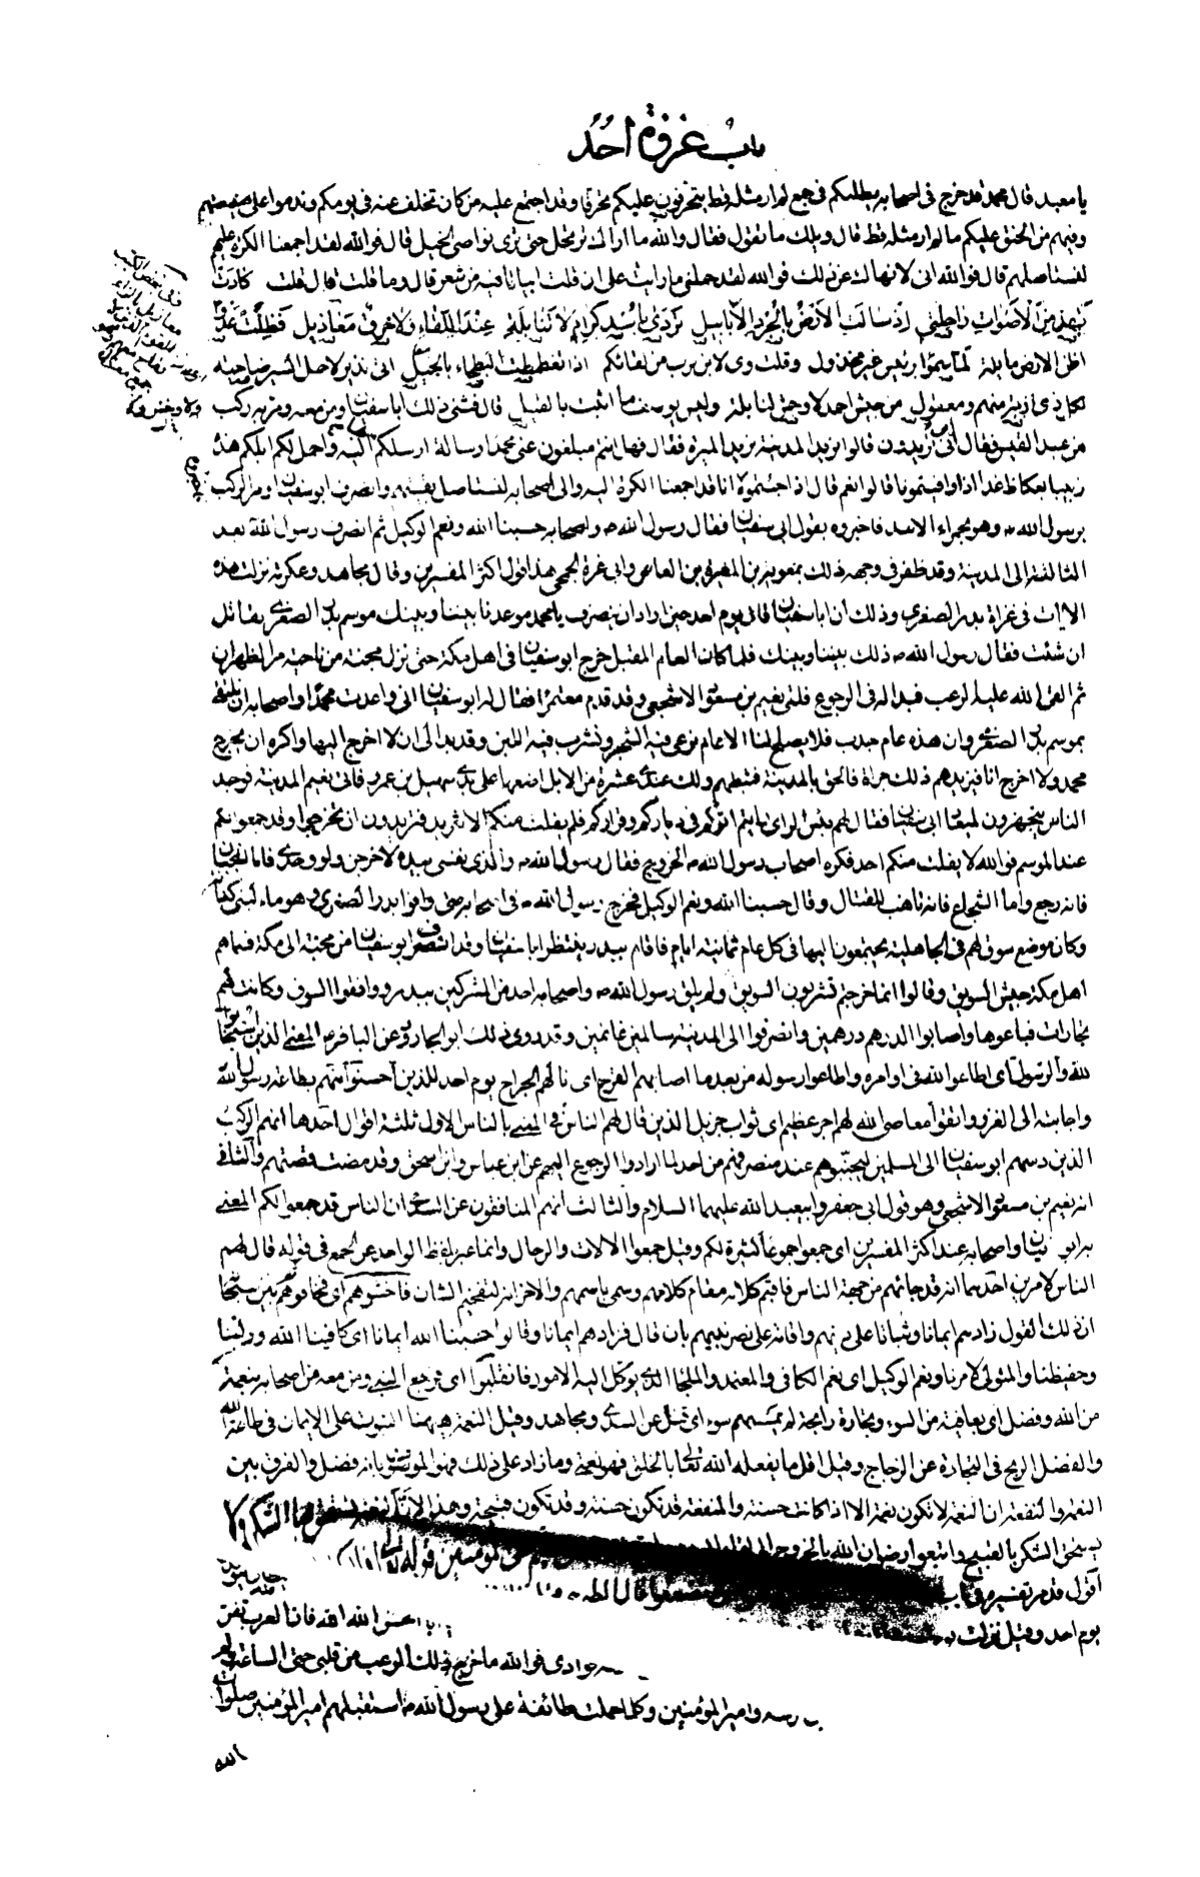 باب غزوة احد
يا معبد قال محمد قد خرج فى اصحابه يطلبكم فى جمع لم ار مثله قط يتحرقون عليكم تحرقا وقد اجتمع عليه من كان تخلف عنه فى يومكم وندموا على صنيعهم
وفيهم من الحنق عليكم ما لم ار مثله قط قال ويلك ما تقول فقال والله ما اراك ترتحل حتى ترى نواصى الخيل قال فوالله لقد اجمعنا الكرة عليهم
لنستاصلهم قال فوالله انى لانهاك عن ذلك فوالله لقد حملنى ما رايت على ان قلت ابياتا فيه من شعر قال وما قلت قال قلت كادت
تهد من الاصوات راحلتى اذ سالت الارض بالجرد الابابيل تردى باسد كرام لا تنابلة عند اللقاء ولا خرق معازيل فظلت عدوا
اظن الارض مايلة لما سموا برئيس غير مخذول وقلت وى لابن حرب من لقائكم اذا تغطمطت البطحاء بالجيل انى نذير لاهل السير ضاحية
لكل ذى اربة منهم ومعقول من جيش احمد لا وخش تنابلة وليس يوصف ما اثبت بالقيل قال فثنى ذلك ابا سفيان ومن معه ومر به ركب
من عبد القيس فقال اين تريدون قالوا نريد المدينة نريد الميرة فقال فهل انتم مبلغون عنى محمدا رسالة ارسلكم اليه واحمل لكم ابلكم هذه
زبيبا بعكاظ غدا اذا وافيتمونا قالوا نعم قال اذا جئتموه انا قد اجمعنا الكرة اليه والى اصحابه لنستاصل بقيتهم وانصرف ابو سفيان ومر الركب
برسول الله ص وهو بحمراء الاسد فاخبروه بقول ابى سفيان فقال رسول الله ص واصحابه حسبنا الله ونعم الوكيل ثم انصرف رسول الله بعد
الثالثة الى المدينة وقد ظفر فى وجهه ذلك بمعوية بن المغيرة بن العاص وابى غرة الجمحى هذا قول اكثر المفسرين وقال مجاهد وعكرمة نزلت هذه
الايات فى غزاة بدر الصغرى وذلك ان ابا سفيان قال يوم احد حين اراد ان ينصرف يا محمد موعدنا بيننا وبينك موسم بدر الصغرى لقابل
ان شئت فقال رسول الله ص ذلك بيننا وبينك فلما كان العام المقبل خرج ابو سفيان فى اهل مكة حتى نزل مجنة من ناحية مر الظهران
ثم القى الله عليه الرعب فبدا له فى الرجوع فلقى نعيم بن مسعود الاشجعى وقد قدم معتمرا فقال له ابو سفيان انى واعدت محمدا واصحابه ان نلتقى
بموسم بدر الصغرى وان هذه عام جدب فلا يصلح لنا الا عام نرعى فيه الشجر ونشرب فيه اللبن وقد بدا لى ان لا اخرج اليها واكره ان يخرج
محمد ولا اخرج انا فيزيدهم ذلك جراة فالحق بالمدينة فثبطهم ولك عندى عشرة من الابل اضعها على يدى سهيل بن عمرو فاتى نعيم المدينة فوجد
الناس يتجهزون لميعاد ابى سفيان فقال لهم بئس الراى رايتم اتوكم فى دياركم وقراركم فلم يفلت منكم الا شريد فتريدون ان تخرجوا وقد جمعوا لكم
عند الموسم فوالله لا يفلت منكم احد فكره اصحاب رسول الله ص الخروج فقال رسول الله ص والذى نفسى بيده لاخرجن ولو وحدى فاما الجبان
فانه رجع واما الشجاع فانه تاهب للقتال وقال حسبنا الله ونعم الوكيل فخرج رسول الله ص فى اصحابه حتى وافوا بدر الصغرى وهو ماء لبنى كنانة
وكان موضع سوق لهم فى الجاهلية يجتمعون اليها فى كل عام ثمانية ايام فاقام ببدر ينتظر ابا سفيان وقد انصرف ابو سفيان من مجنة الى مكة فسماهم
اهل مكة جيش السويق وقالوا انما خرجتم تشربون السويق ولم يلق رسول الله ص واصحابه احد من المشركين ببدر ووافقوا السوق وكانت لهم
تجارات فباعوها واصابوا الدرهم درهمين وانصرفوا الى المدينة سالمين غانمين وقد روى ذلك ابو الجارود عن الباقر ع المعنى الذين استجابوا
لله والرسول اى اطاعوا الله فى اوامره واطاعوا رسوله من بعد ما اصابهم القرح اى نالهم الجراح يوم احد للذين احسنوا منهم بطاعة رسول الله
واجابته الى الغزو واتقوا معاصى الله لهم اجر عظيم اى ثواب جزيل الذين قال لهم الناس فى المعنى بالناس الاول ثلثة اقوال احدها انهم الركب
الذين دسهم ابو سفيان الى المسلمين ليجبنوهم عند منصرفهم من احد لما ارادوا الرجوع اليهم عن ابن عباس وابن اسحق وقد مضت قصتهم والثانى
انه نعيم بن مسعود الاشجعى وهو قول ابى جعفر وابى عبد الله عليهما السلام والثالث انهم المنافقون عن السدى ان الناس قد جمعوا لكم المعنى
به ابو سفيان واصحابه عند اكثر المفسرين اى جمعوا جموعا كثيرة لكم وقيل جمعوا الالات والرجال وانما عبر بلفظ الواحد عن الجمع فى قوله قال لهم
الناس لامرين احدهما انه قد جائهم من جهة الناس فاقيم كلامه مقام كلامهم وسمى باسمهم والاخر انه لتفخيم الشان فاخشوهم اى فخافوهم ثم بين سبحانه
ان ذلك القول زادهم ايمانا وثباتا على دينهم واقامة على نصر نبيهم بان قال فزادهم ايمانا وقالوا حسبنا الله ايمانا اى كافينا الله وولينا
وحفيظنا والمتولى لامرنا ونعم الوكيل اى نعم الكافى والمعتمد والملجا الذى يوكل اليه الامور فانقلبوا اى فرجع النبى ومن معه من اصحابه بنعمة
من الله وفضل اى بعافية من السوء وتجارة رابحة لم يمسسهم سوء اى قتل عن السدى ومجاهد وقيل النعمة هيهنا الثبوت على الايمان فى طاعة الله
والفضل الربح فى التجارة عن الزجاج وقيل اقل ما يفعله الله تعالى بالخلق فهو نعمة وما زاد على ذلك فهو الموصوف بانه فضل والفرق بين
النعمة والمنفعة ان النعمة لا تكون نعمة الا اذا كانت حسنة والمنفعة قد تكون حسنة وقد تكون قبيحة وهذا لان النعمة تستحق بها الشكر ولا
يستحق الشكر بالقبيح واتبعوا رضوان الله بالخروج الى لقاء
اقول قد مر تفسيره فى باب المؤمنين من قوله تعالى
يوم احد وقيل نزلت قال
الله الله فان العرب
وادى فوالله ما خرج ذلك الرعب من قلبى حتى الساعة
وامير المؤمنين وكلما حملت طائفة على رسول الله ص استقبلهم امير المؤمنين صلوات
الله
فى بعض الكتب
معازيل بالزاء